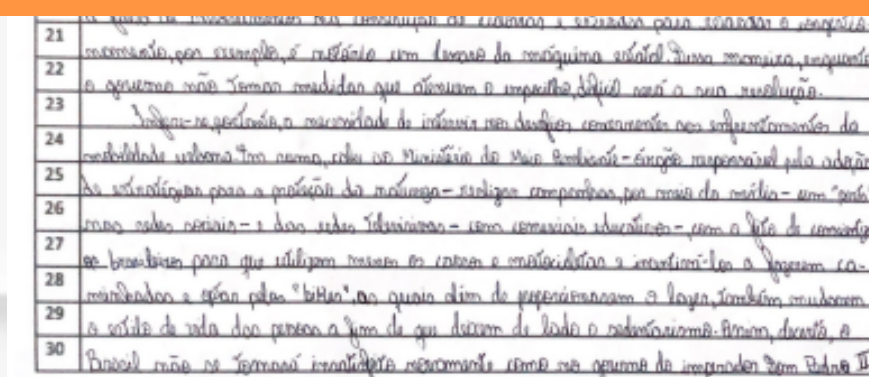 construção de ciclovias e estradas para
21 momento, por exemplo, é notório um descaso da máquina estatal. Dessa maneira, enquanto
22 o governo não tomar medidas que atenuem o empecilho, difícil será a sua resolução.
23 Infere-se, portanto, a necessidade de intervir nos desafios concernentes aos enfrentamentos da
24 mobilidade urbana. Em suma, cabe ao Ministério do Meio Ambiente - órgão responsável pela adoção
25 de estratégias para a proteção da natureza - realizar campanhas, por meio da mídia - com "posts"
26 nas redes sociais - e das redes televisivas - com comerciais educativos -, com o fito de
27 os brasileiros para que utilizem menos os carros e motocicletas e incentivá-los a fazerem ca-
28 minhadas e optar pelas "bikes", as quais além de proporcionarem o lazer, também mudarem
29 o estilo de vida das pessoas a fim de que deixem de lado o sedentarismo. Assim, decerto, o
30 Brasil não se tornará novamente como no governo do imperador Dom Pedro II